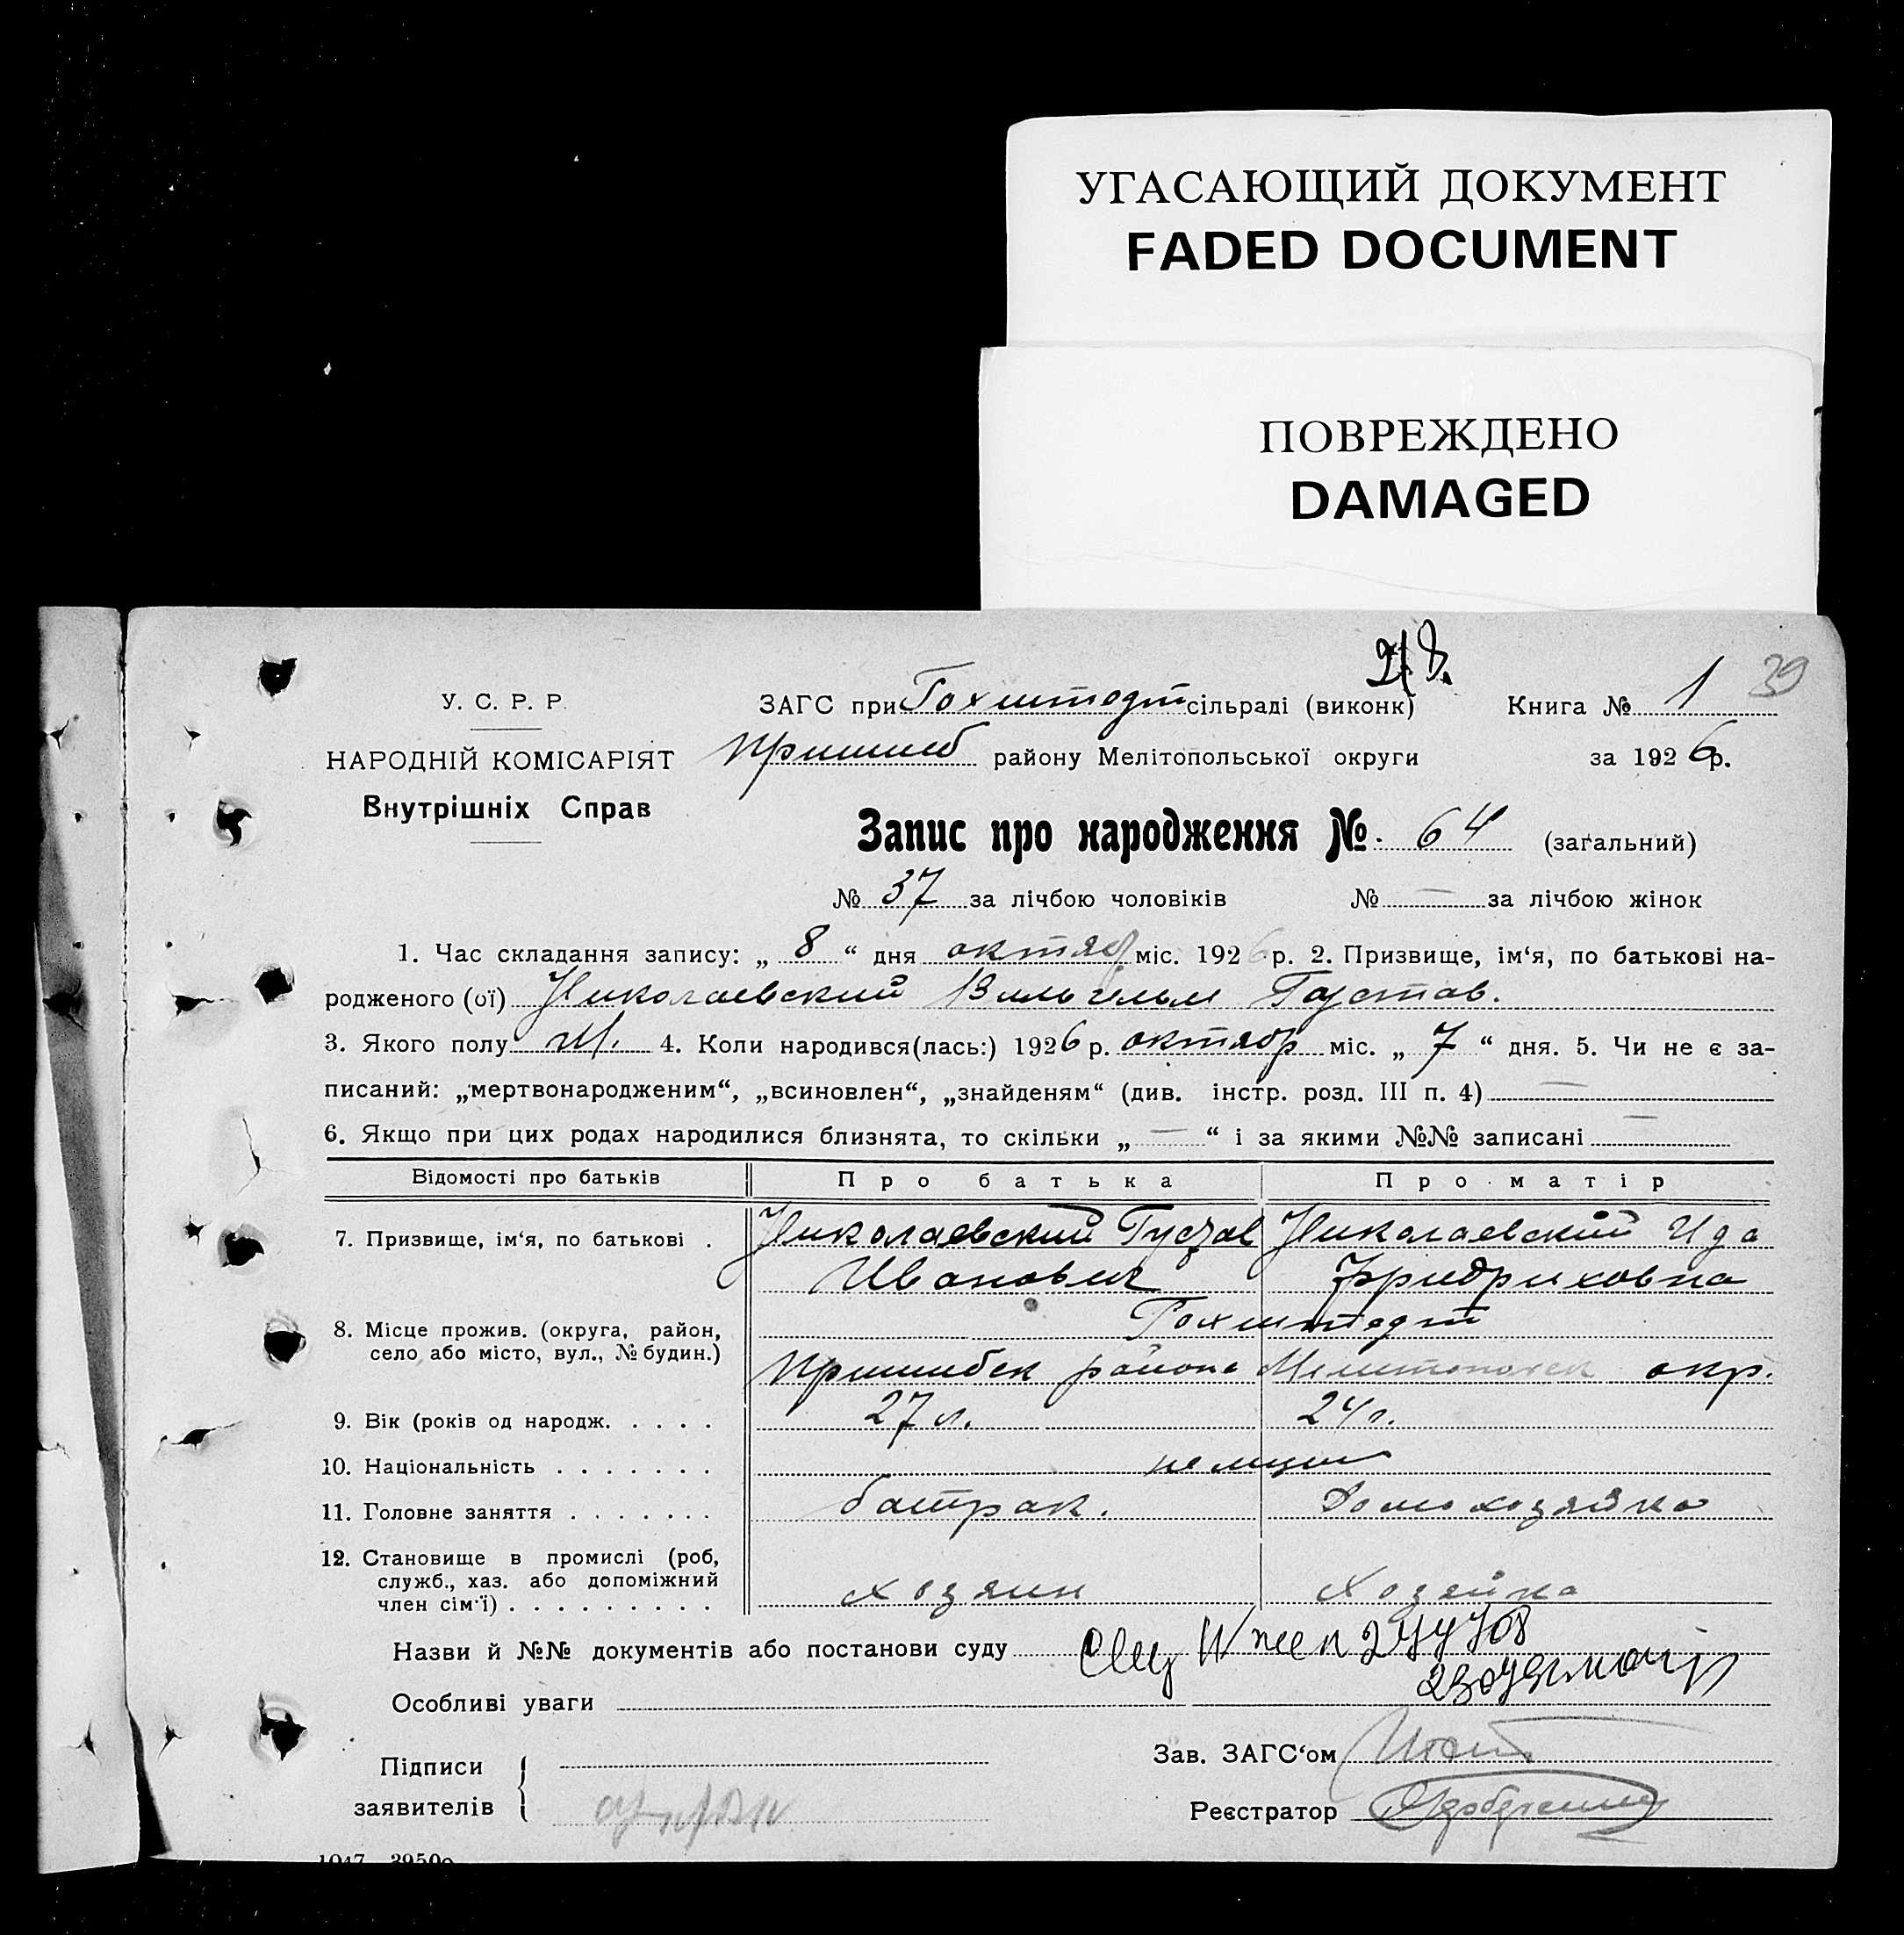 УГАСАЮЩИЙ ДОКУМЕНТ
FADED DOCUMENT
ПОВРЕЖДЕНО
DAMAGED
39
У. С. Р. Р.
ЗАГС при Гохштедт сільраді (виконк) Книга № 1
НАРОДНІЙ КОМІСАРІЯТ
Пришиб району Мелітопольської округи за 1926 р.
Внутрішніх Справ
Запис про народження № 64 (загальний)
№ 37 за лічбою чоловіків № — за лічбою жінок
1. Час складання запису: „ 8 “ дня октяб міс. 1926 р. 2. Призвище, ім‘я, по батькові на-
родженого (ої) Николаевский Вильгельм Густав.
3. Якого полу М. 4. Коли народився(лась:) 1926 р. октябр міс. „ 7 “ дня. 5. Чи не є за-
писаний: „мертвонародженим“, „всиновлен“, „знайденям“ (див. інстр. розд. III п. 4) —
6. Якщо при цих родах народилися близнята, то скільки „ — “ і за якими №№ записані —
Відомості про батьків Про батька Про матір
7. Призвище, ім‘я, по батькові . Николаевский Густав Николаевский Ида
Иванович Фридриховна
8. Місце прожив. (округа, район, Гохштедт
село або місто, вул., № будин.) Пришибск района Мелитопольск окр.
9. Вік (років од народж. . . . . 27 л. 24 л.
10. Національність . . . . . . . немцы
11. Головне заняття . . . . . . . батрак. Домохозяйка
12. Становище в промислі (роб,
служб., хаз. або допоміжний
член сім‘ї) . . . . . . . . . хозяин Хозяйка
Назви й №№ документів або постанови суду
Особливі уваги
Підписи
заявителів
Зав. ЗАГС‘ом
Реєстратор